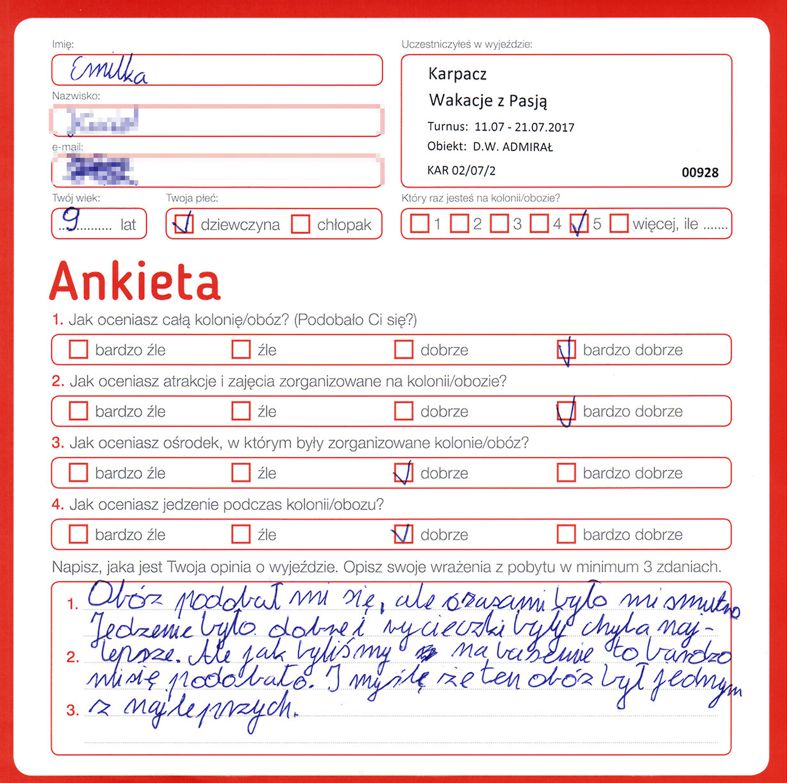 Imię:
Emilka
Nazwisko:
e-mail:
Twój wiek:
9 lat
Twoja płeć:
dziewczyna chłopak
Uczestniczyłeś w wyjeździe:
Karpacz
Wakacje z Pasją
Turnus: 11.07 - 21.07.2017
Obiekt: D.W. ADMIRAŁ
KAR 02/07/2 00928
Który raz jesteś na kolonii/obozie?
1 2 3 4 5 więcej, ile .......
Ankieta
1. Jak oceniasz całą kolonię/obóz? (Podobało Ci się?)
bardzo źle źle dobrze bardzo dobrze
2. Jak oceniasz atrakcje i zajęcia zorganizowane na kolonii/obozie?
bardzo źle źle dobrze bardzo dobrze
3. Jak oceniasz ośrodek, w którym były zorganizowane kolonie/obóz?
bardzo źle źle dobrze bardzo dobrze
4. Jak oceniasz jedzenie podczas kolonii/obozu?
bardzo źle źle dobrze bardzo dobrze
Napisz, jaka jest Twoja opinia o wyjeździe. Opisz swoje wrażenia z pobytu w minimum 3 zdaniach.
1. Obóz podobał mi się, ale czasami było mi smutno
Jedzenie było dobre i wycieczki były chyba naj-
2. lepsze. Ale jak byliśmy na basenie to bardzo
mi się podobało. I myślę że ten obóz był jednym
3. z najleprzych.